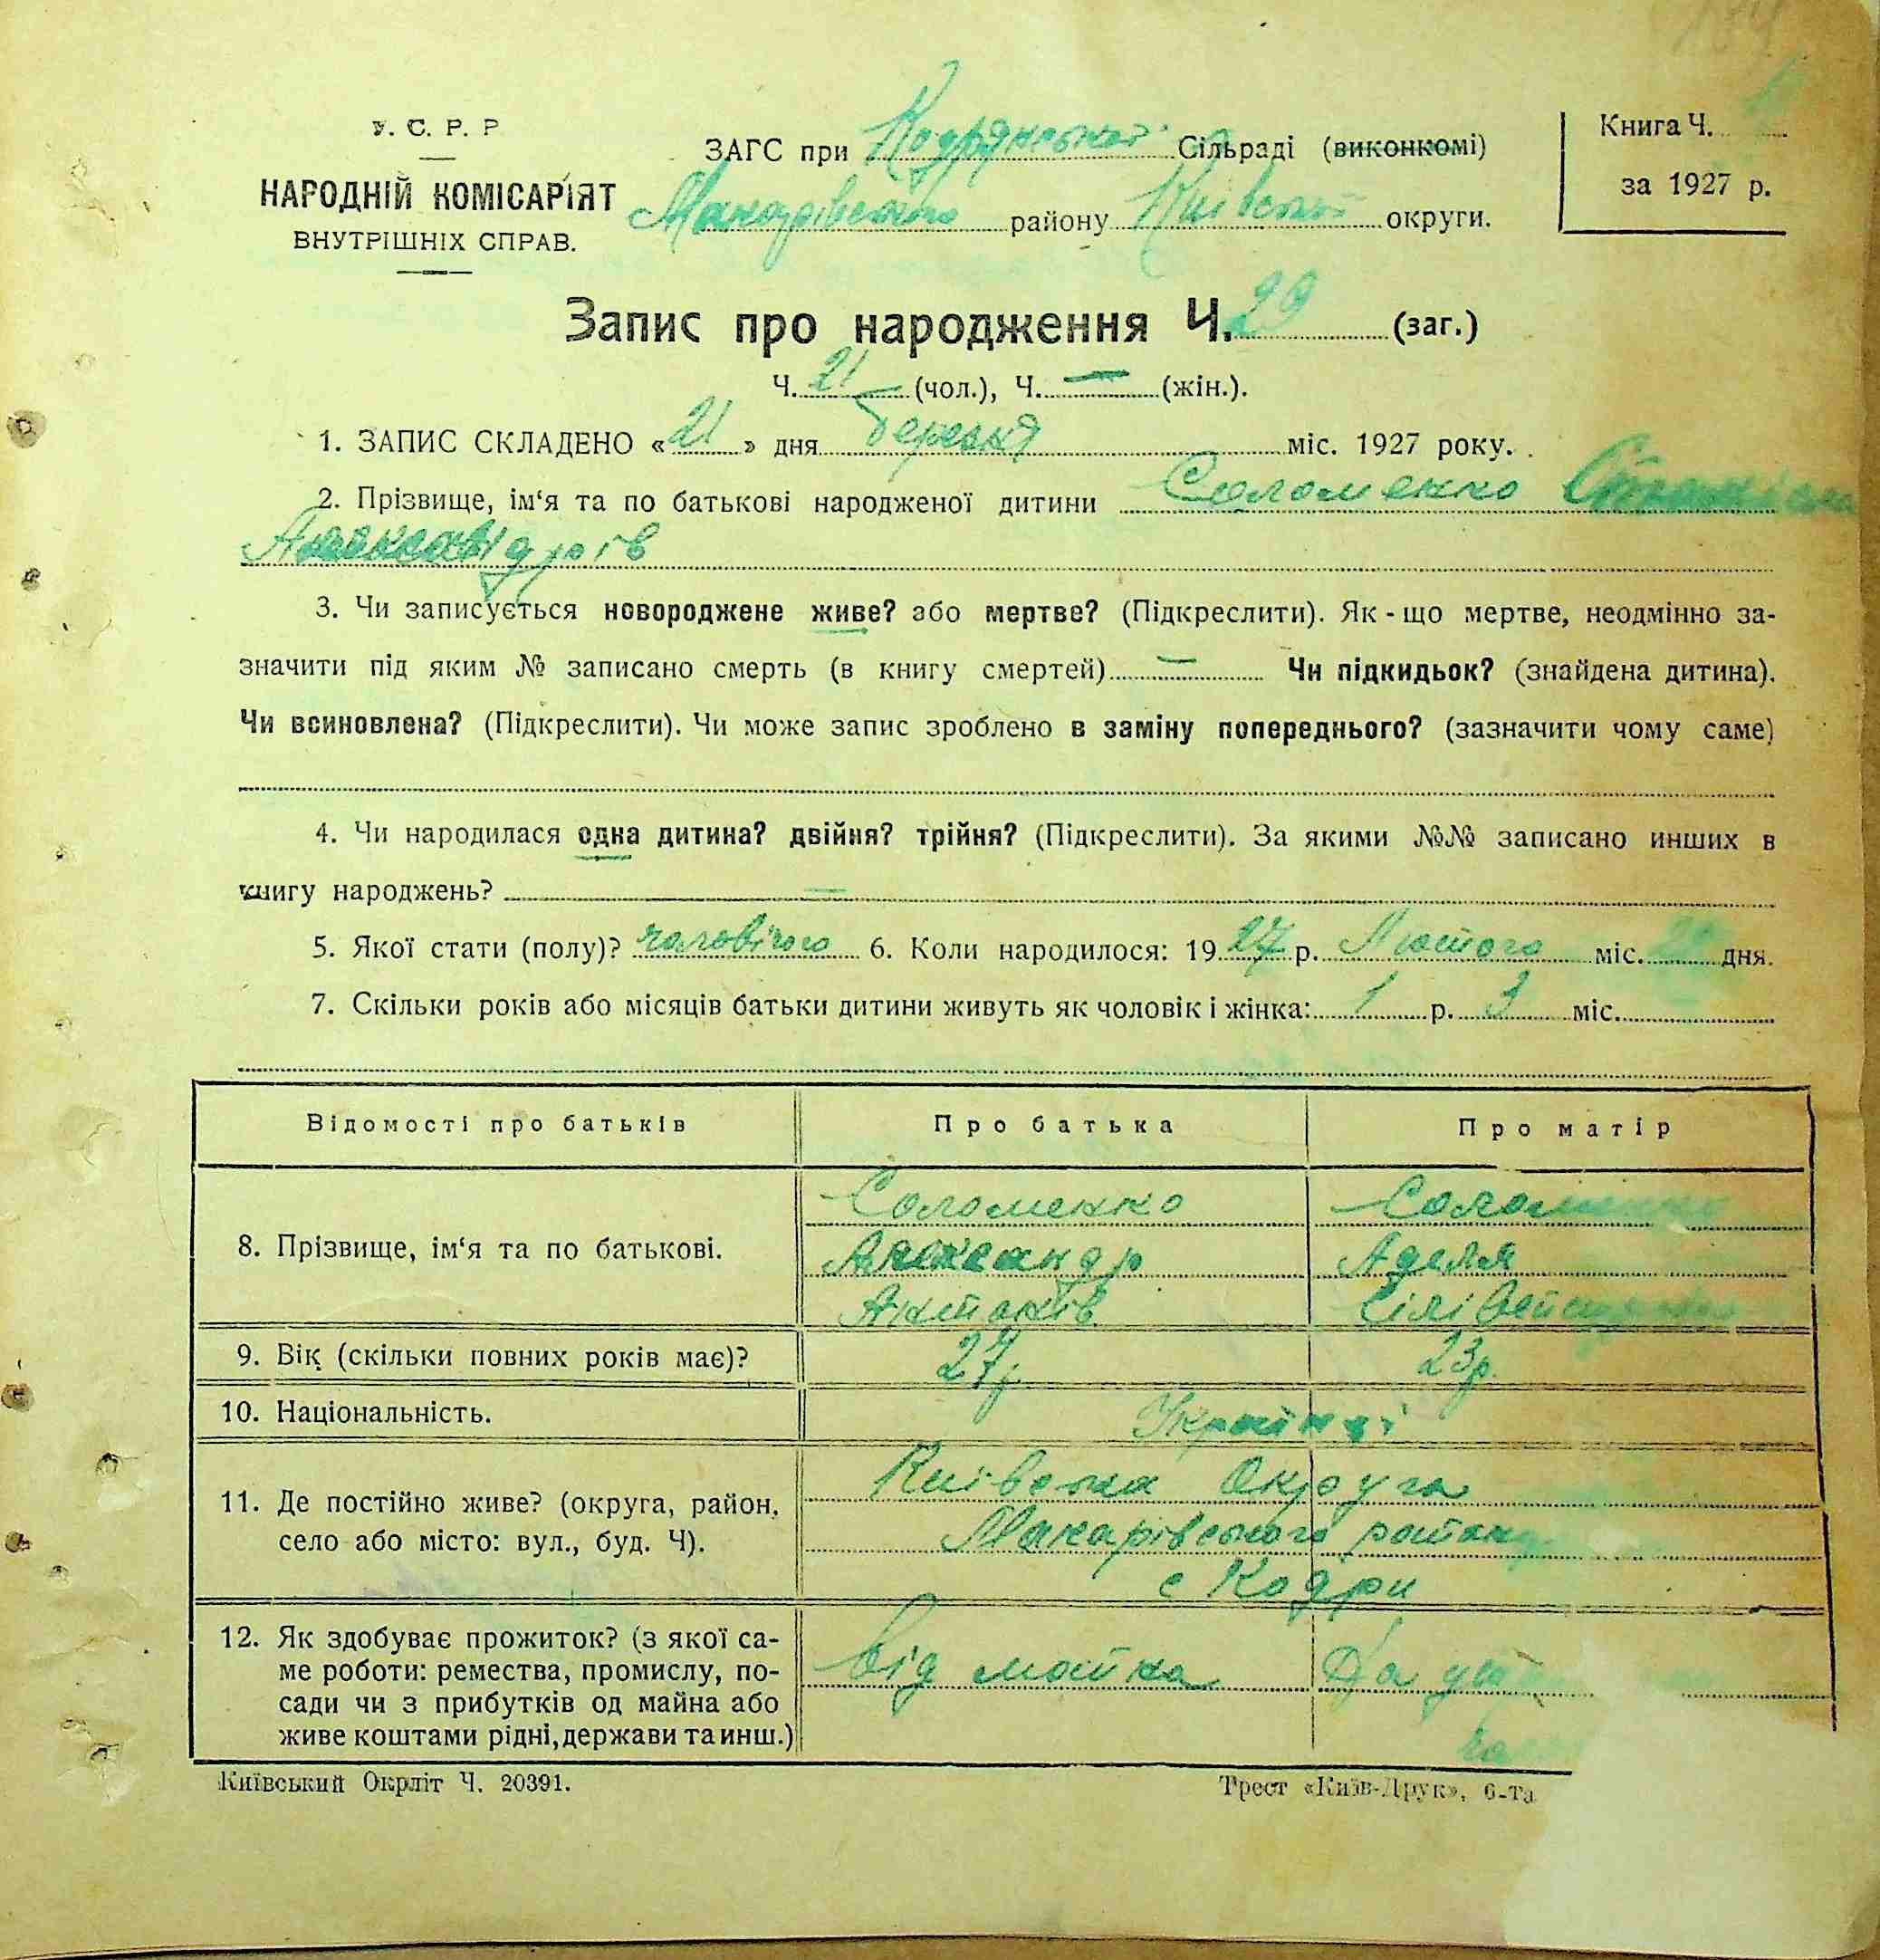 У. С. Р. Р
НАРОДНІЙ КОМІСАРІЯТ
ВНУТРІШНІХ СПРАВ.
ЗАГС при Кодрянській Сільраді (виконкомі)
Макарівського району Київської округи.
Книга Ч.
за 1927 р.
Запис про народження Ч. 29 (заг.)
Ч. 21 (чол.), Ч. — (жін.).
1. ЗАПИС СКЛАДЕНО «21» дня березня міс. 1927 року.
2. Прізвище, ім‘я та по батькові народженої дитини Соломенко
Александрів
3. Чи записується новороджене живе? або мертве? (Підкреслити). Як-що мертве, неодмінно за-
значити під яким № записано смерть (в книгу смертей) — Чи підкидьок? (знайдена дитина).
Чи всиновлена? (Підкреслити). Чи може запис зроблено в заміну попереднього? (зазначити чому саме)
4. Чи народилася одна дитина? двійня? трійня? (Підкреслити). За якими №№ записано инших в
книгу народжень? —
5. Якої стати (полу)? чоловічого 6. Коли народилося: 1927 р. Лютого міс. дня.
7. Скільки років або місяців батьки дитини живуть як чоловік і жінка: 1 р. 3 міс.
Відомості про батьків Про батька Про матір
8. Прізвище, ім‘я та по батькові.
Соломенко
Александр
Антонів
Соломенко
Аделя
9. Вік (скільки повних років має)? 27 р. 23 р.
10. Національність. Українці
11. Де постійно живе? (округа, район,
село або місто: вул., буд. Ч).
Київська Округа
Макарівського району
с Кодри
12. Як здобуває прожиток? (з якої са-
ме роботи: ремества, промислу, по-
сади чи з прибутків од майна або
живе коштами рідні, держави та инш.)
Від майна
Київський Окрліт Ч. 20391.
Трест «Київ-Друк», 6-та